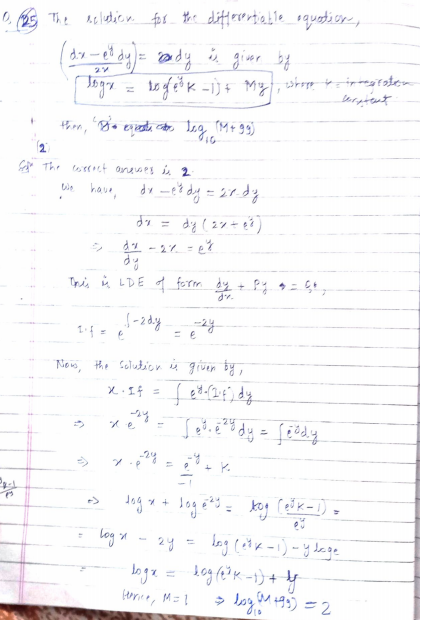 Q. 25 The solution for the differentiable equation,
(dx - e^y dy)/2x = dy is given by
log x = log(e^y K - 1) + My, where K = integration constant
then, log₁₀ (M+99)
(2)
Solⁿ The correct answer is 2.
We have, dx - e^y dy = 2x dy
dx = dy (2x + e^y)
⇒ dx/dy - 2x = e^y
This is LDE of form dy/dx + Py = Q,
I.f = e^∫-2dy = e^-2y
Now, the solution is given by,
x . If = ∫ e^y.(I.f) dy
⇒ x e^-2y = ∫ e^y. e^-2y dy = ∫ e^-y dy
⇒ x . e^-2y = e^-y/-1 + K
⇒ log x + log e^-2y = log (e^y K - 1)/e^y =
= log x - 2y = log (e^y K - 1) - y log e
log x = log (e^y K - 1) + y
Hence, M = 1 ⇒ log₁₀ (M+99) = 2